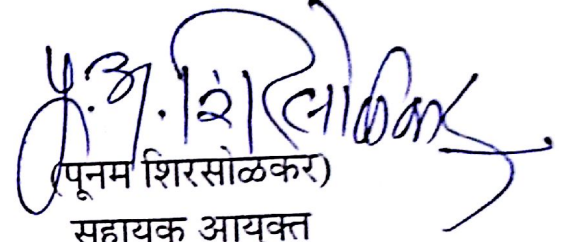 पू.अ.शिरसोळकर
(पूनम शिरसोळकर)
सहायक आयुक्त